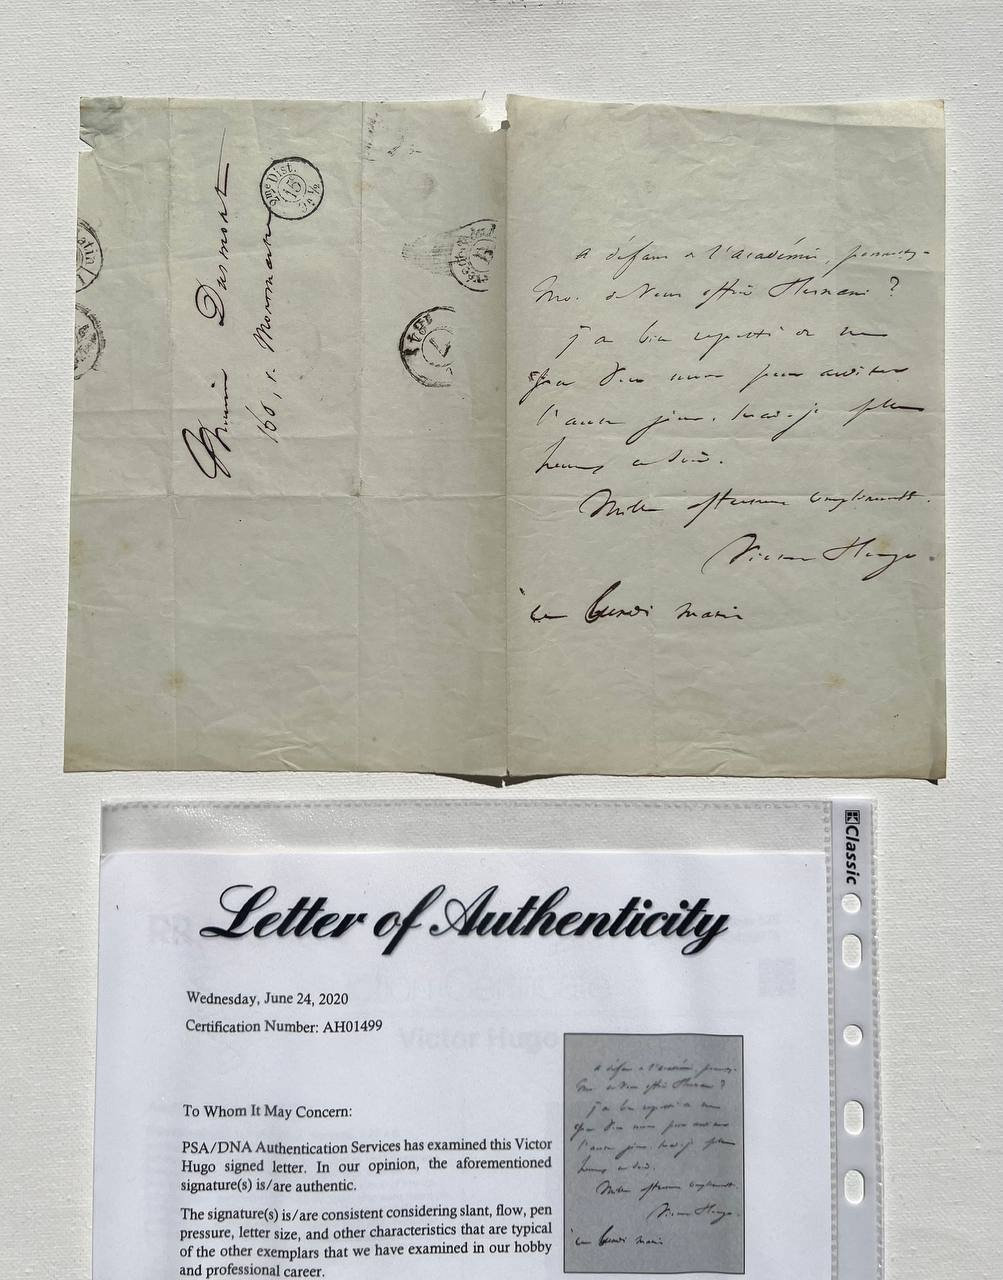 166, r. Montmartre
2me Dist.
15
à défaut de l'Académie, permettez-
moi de vous offrir Hernani ?
j'ai bien regretté de ne
pas
l'autre jour. Serai-je plus
heureux ce soir.
Mille affectueux compliments.
Victor Hugo.
ce lundi matin
Classic
Letter of Authenticity
Wednesday, June 24, 2020
Certification Number: AH01499
Victor Hugo
To Whom It May Concern:
PSA/DNA Authentication Services has examined this Victor
Hugo signed letter. In our opinion, the aforementioned
signature(s) is/are authentic.
The signature(s) is/are consistent considering slant, flow, pen
pressure, letter size, and other characteristics that are typical
of the other exemplars that we have examined in our hobby
and professional career.